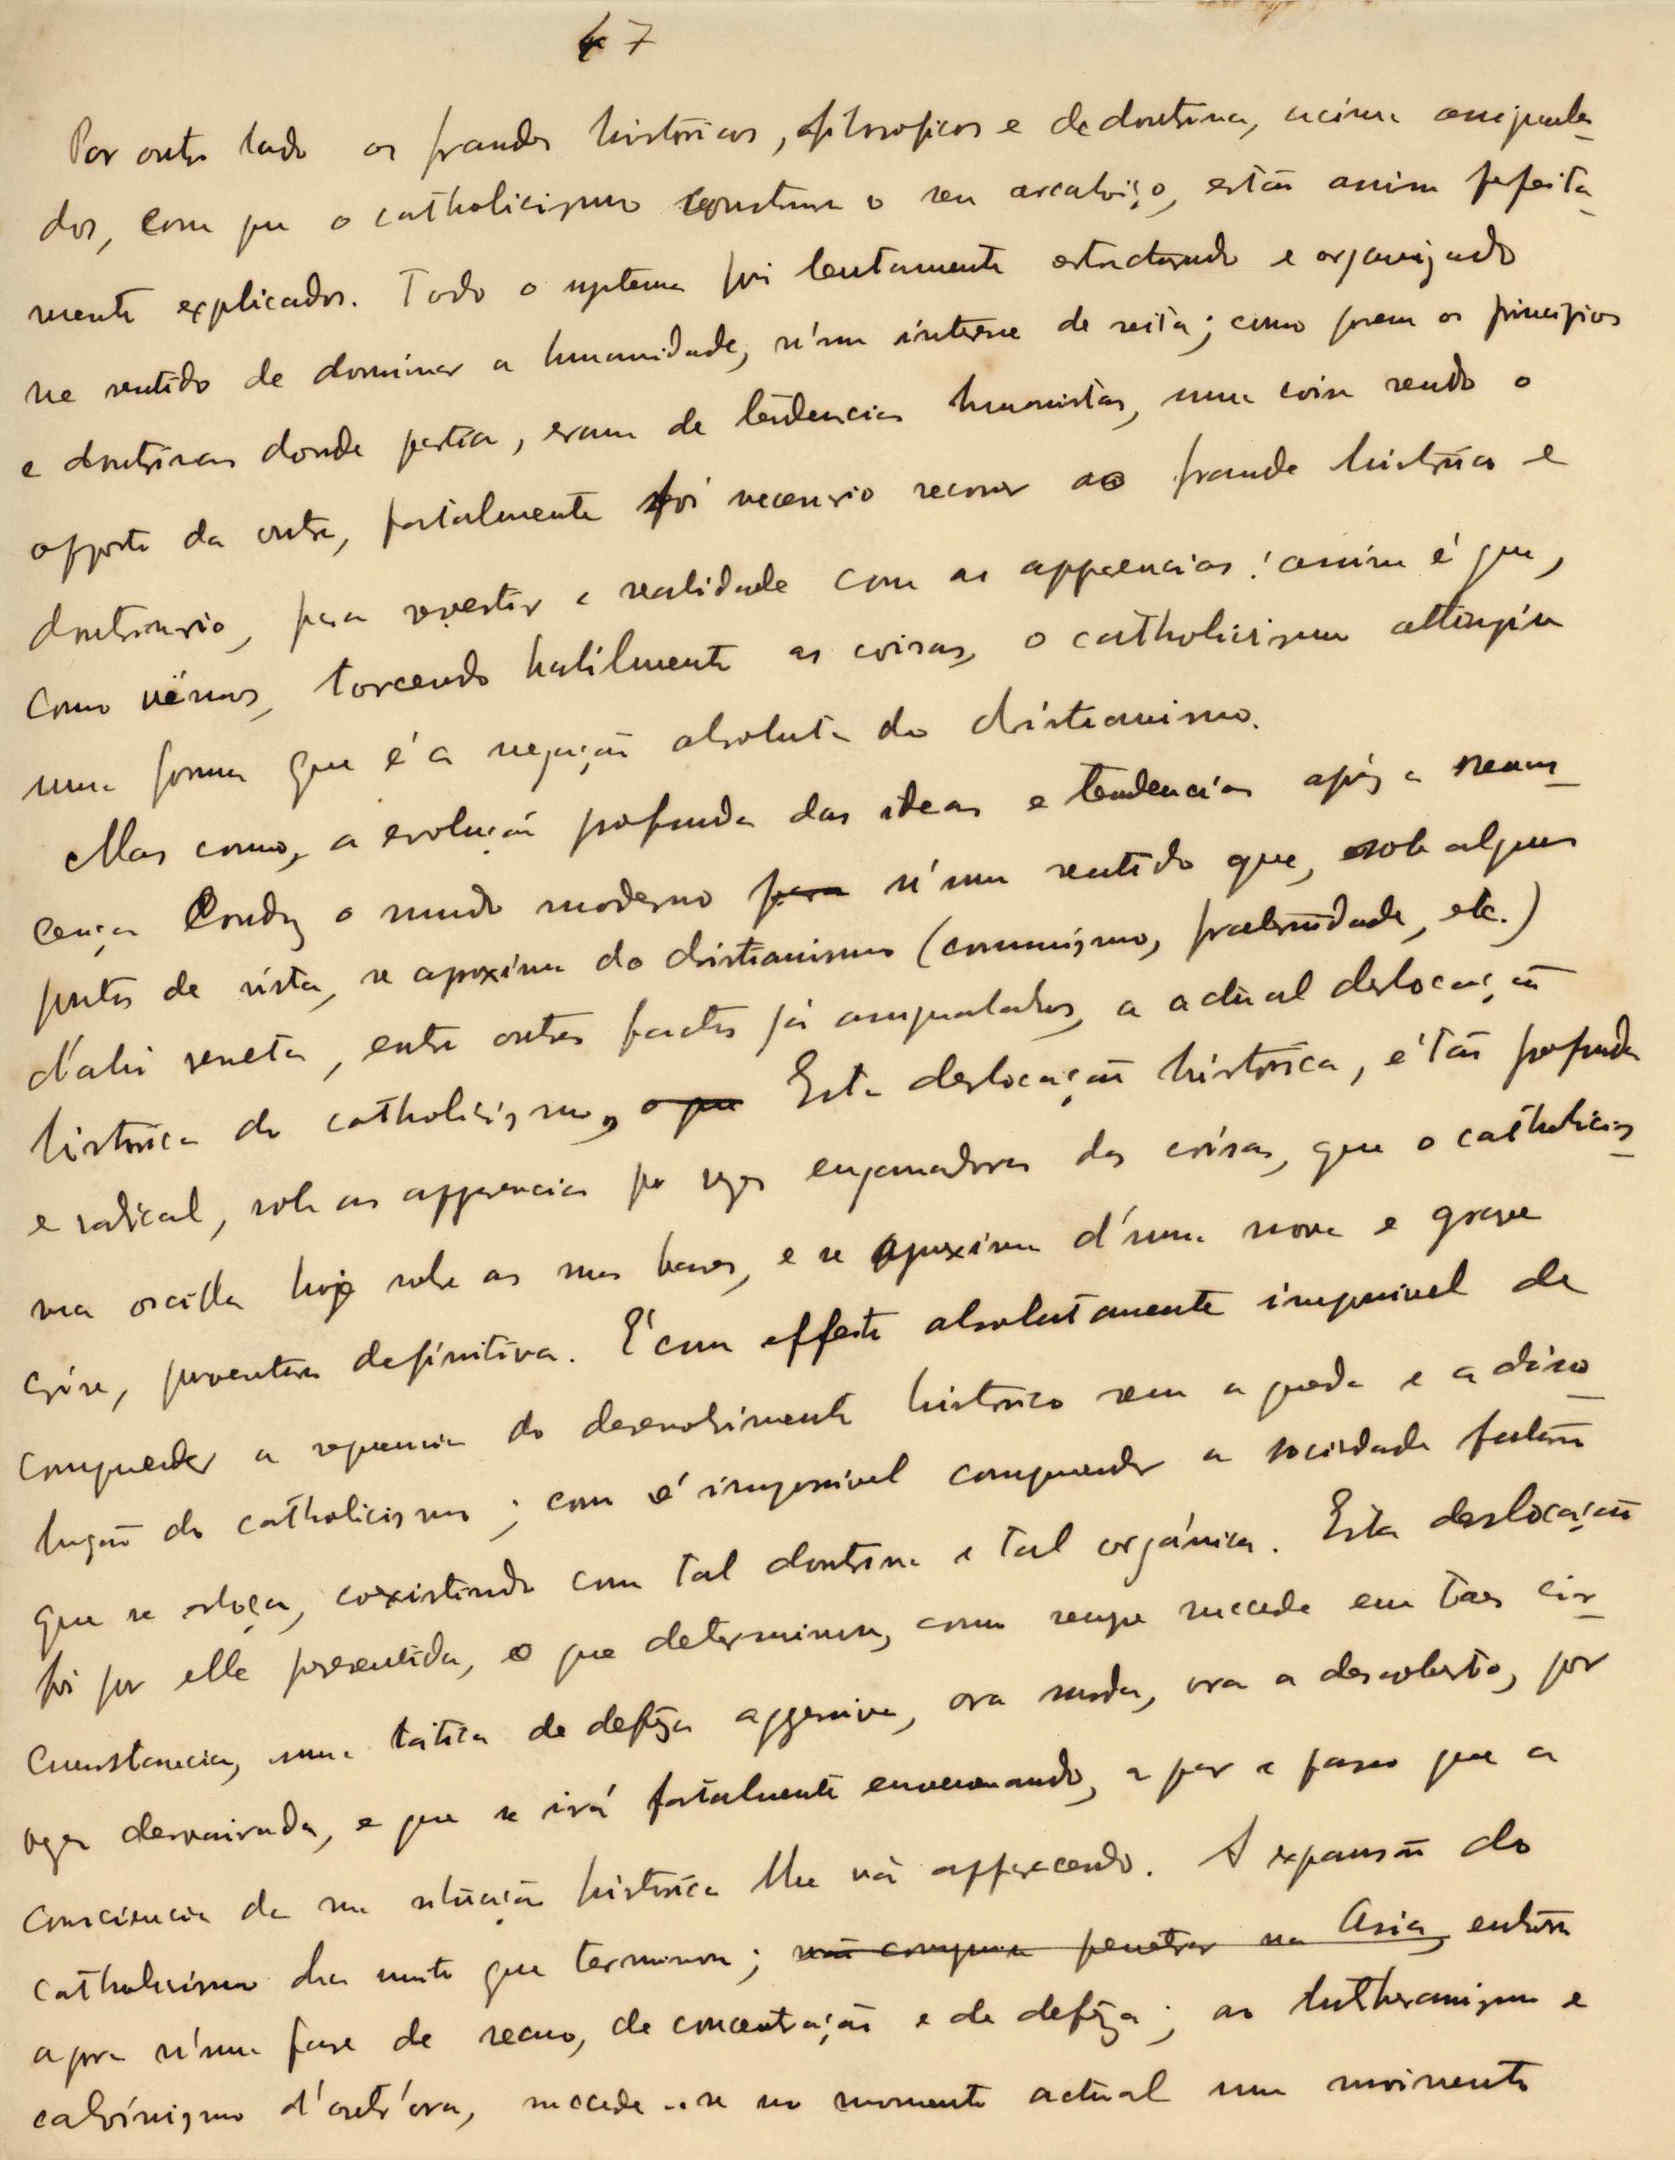 7
Por outro lado as fraudes historicas, filosoficas e de doutrina, acima assignala-
dos, com que o catholicismo construe o seu arcaboiço, estão assim perfeita-
mente explicados. Todo o systema foi lentamente estructurado e organizado
no sentido de dominar a humanidade, n'um interesse de seita; como porem os principios
e doutrinas donde partia, eram de tendencias humanistas, uma coisa sendo o
opposto da outra, fatalmente foi necessario recorrer á fraude historica e
doutrinaria, para revestir a realidade com as apparencias: assim é que,
como vêmos, torcendo habilmente as coisas, o catholicismo attingiu
uma forma que é a negação absoluta do christianismo.
Mas como, a evolução profunda das ideas e tendencias após a renas-
cença conduz o mundo moderno para n'um sentido que, sob alguns
pontos de vista, se aproxima do christianismo (communismo, fraternidade, etc.)
d'ahi resulta, entre outros factos já assignalados, a actual deslocação
historica do catholicismo, o que Esta deslocação historica, é tão profunda
e radical, sob as apparencias por vezes enganadoras das coisas, que o catholicis-
mo oscilla hoje sobre as suas bases, e se aproxima d'uma nova e grave
crise, porventura definitiva. É com effeito absolutamente impossivel de
comprehender a sequencia do desenvolvimento historico sem a queda e a disso-
lução do catholicismo; como é impossivel comprehender a sociedade futura
que se esboça, coexistindo com tal doutrina e tal orgánica. Esta deslocação
foi por elle presentida, o que determinou, como sempre succede em taes cir-
cumstancias, uma tatica de defeza aggressiva, ora surda, ora a descoberto, por
vezes desvairada, e que se irá fatalmente envenenando, a par e passo que a
consciencia da sua situação historica lhe vá apparecendo. A expansão do
catholicismo ha muito que terminou; não conseguiu penetrar na Asia, entrou
agora n'uma fase de recuo, de concentração e de defeza; ao lutheranismo e
calvinismo d'outr'ora, succede-se no momento actual um movimento